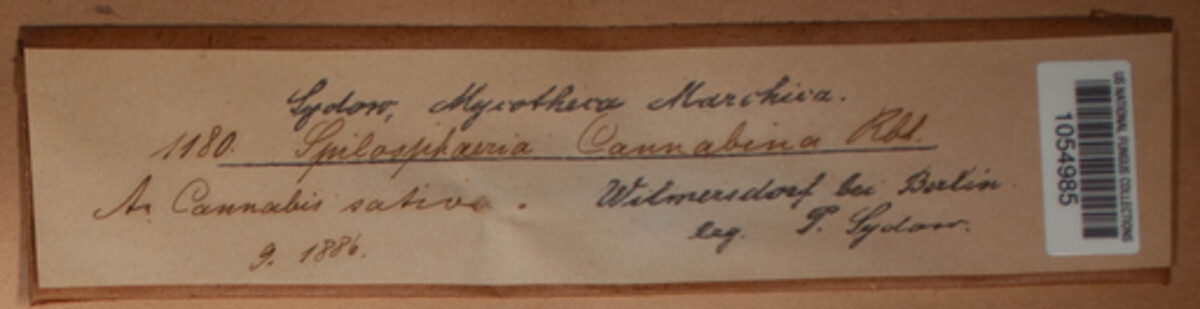 Sydow, Mycotheca Marchica.
1180. Spilosphaeria Cannabina Rbh.
A. Cannabis sativa.
Wilmersdorf bei Berlin.
9. 1886.
leg. P. Sydow.
US NATIONAL FUNGUS COLLECTIONS
1054985